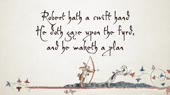 Robert hath a swift hand
He doth gaze upon the fyrd,
and he maketh a plan